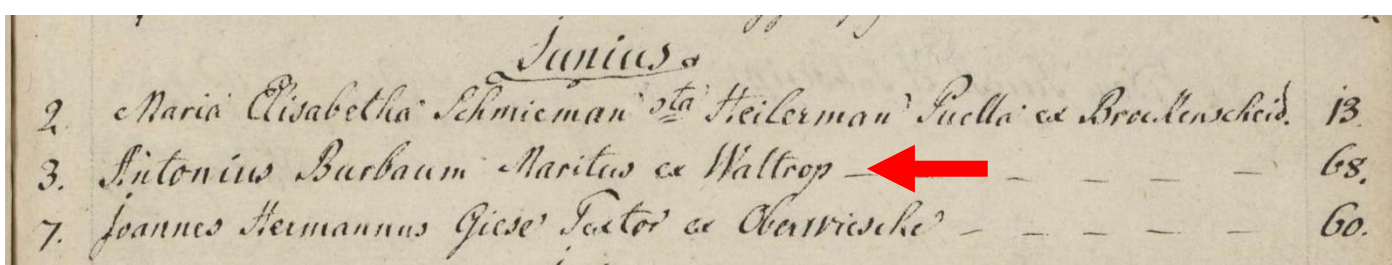 Junius
2. Maria Elisabetha Schmieman dta Heilerman Puella ex Brockenscheid. 13.
3. Antonius Burbaum Maritus ex Waltrop — — — — — 68.
7. Joannes Hermannus Giese Textor ex Oberwiese — — — — — 60.